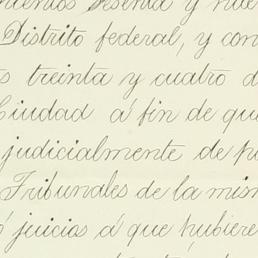 sesenta y nue
Distrito federal, y con
s treinta y cuatro d
Ciudad á fin de que
judicialmente de p
Tribunales de la mism
ó juicios á que hubiere